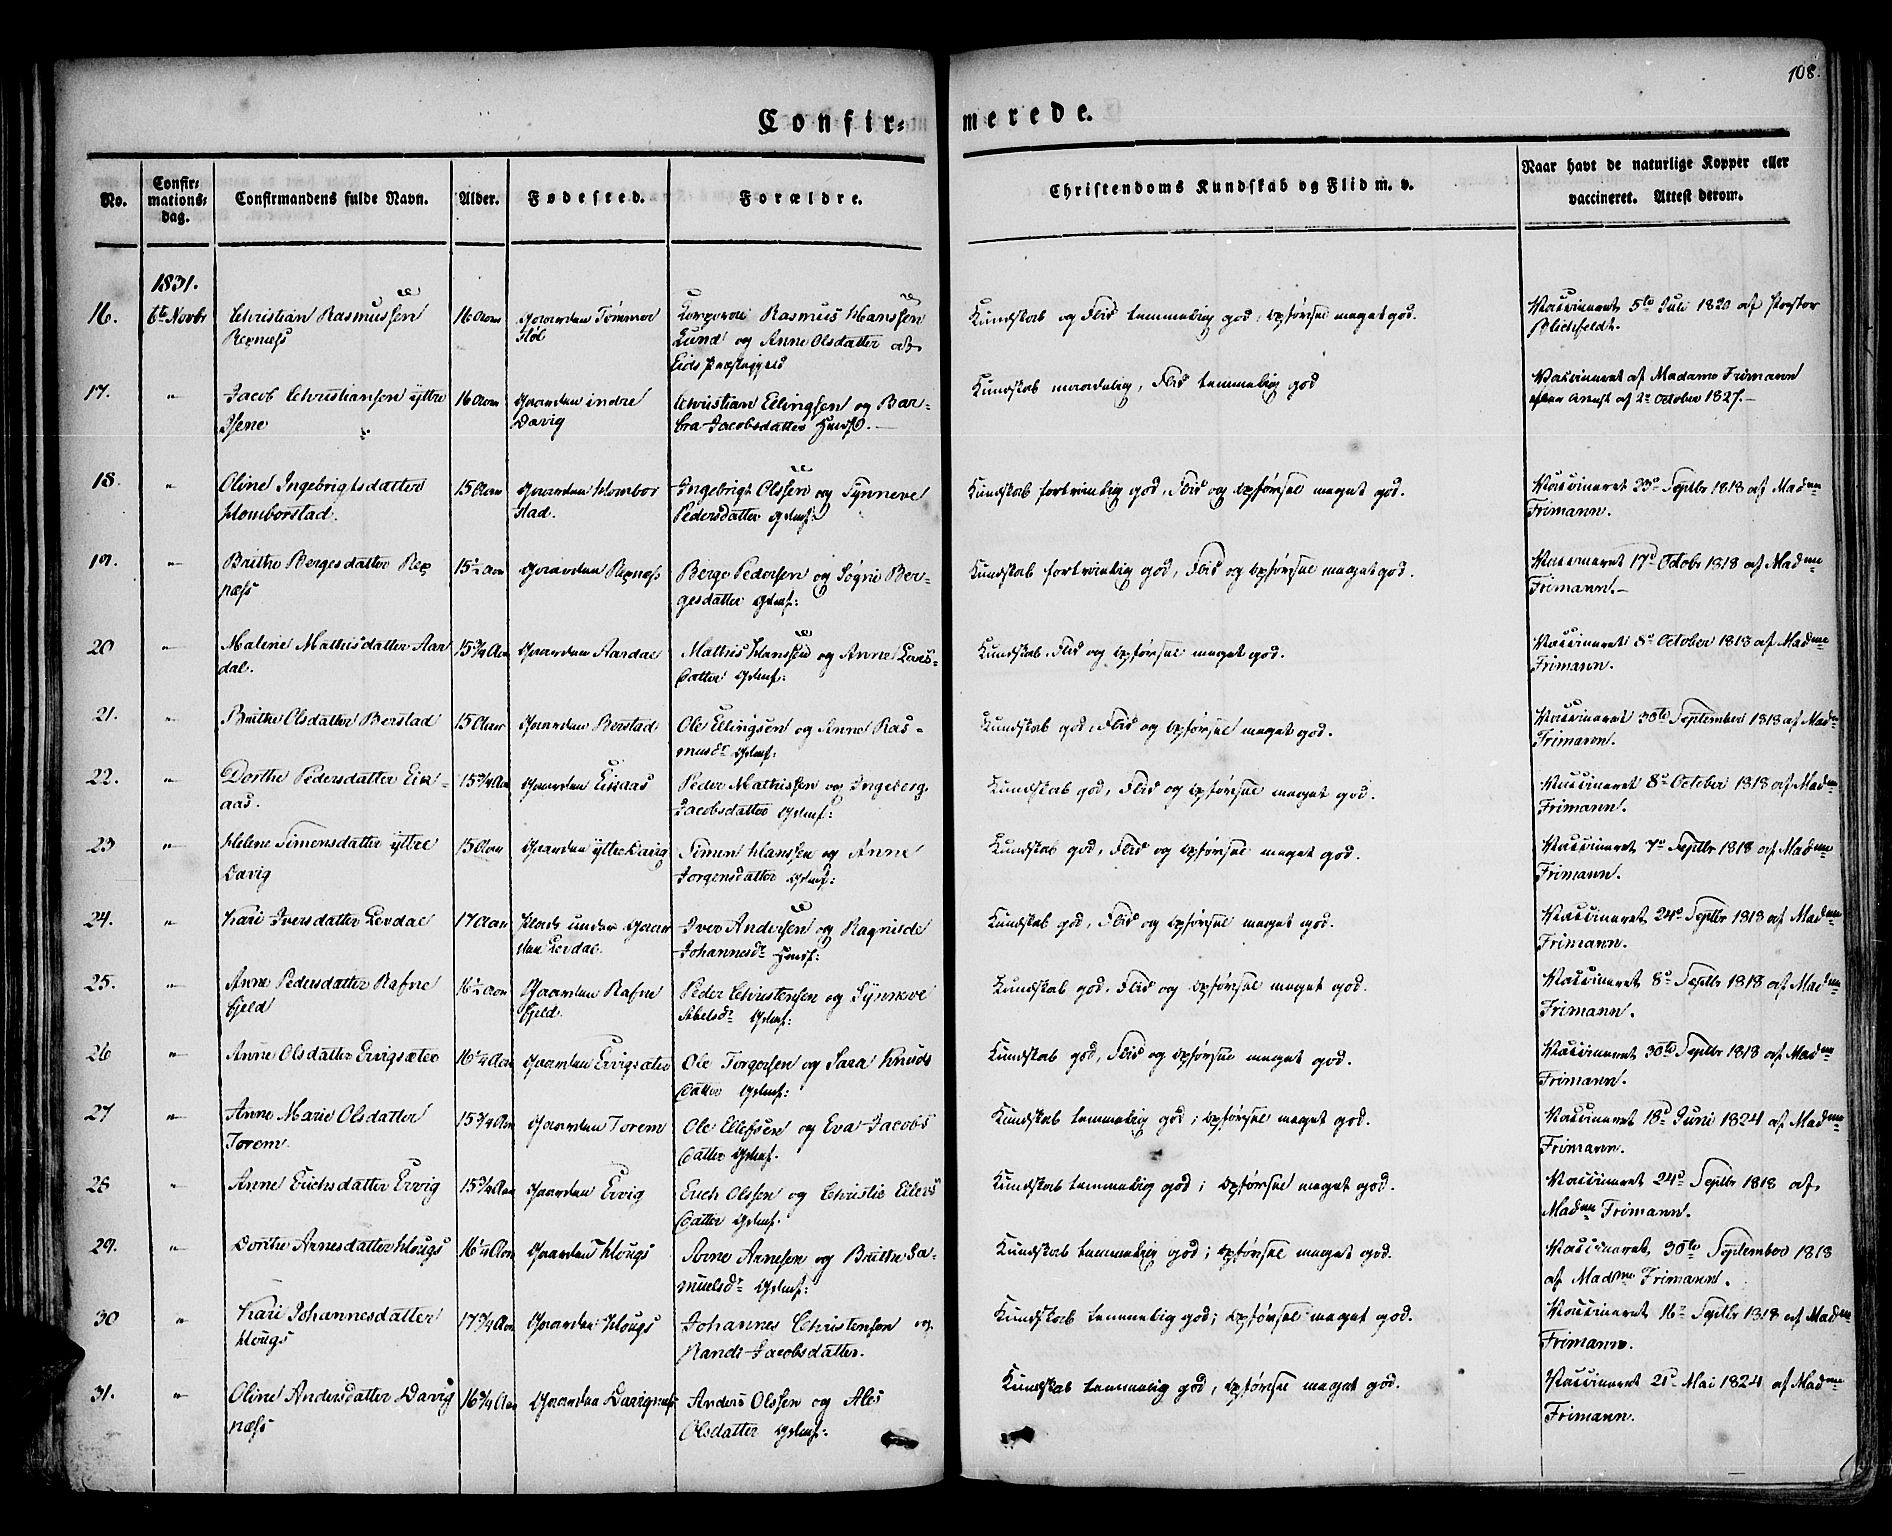 108.
Confir- merede.
No.
Confir-
mations-
dag.
Confirmandens fulde Navn.
Alder.
Fødested.
Forældre.
Christendoms Kundskab og Flid m. v.
Naar havt de naturlige Kopper eller
vaccineret. Attest derom.
1831.
16. 6te Novbr Christian Rasmussen 16 Aar Gaarden Tømmer Rasmus Hanssen Kundskab og Flid temmelig god, opførsel meget god. Vaccineret 5te Juli 1820 af Pastor
Repnæss støl Lund og Anne Olsdatter af Blichfeldt.
Eids Præstegjeld
17. " Jacob Christiansen yttre 16 Aar Gaarden indre Christian Ellingsen og Bar- Kundskab maadelig, Flid temmelig god Vaccineret af Madame Frimann
Isene Davig bra Jacobsdatter Huusf. Attest af 2 October 1827.
18. " Oline Ingebrigtsdatter 15 Aar Gaarden Hombor Ingebrigt Olssen og Synneve Kundskab fortrinlig god, Flid og opførsel meget god. Vaccineret 23d Septbr 1818 af Madme
Homborstad. stad. Pedersdatter Gdmf: Frimann.
19. " Brithe Bergesdatter Rep 15½ Aar Gaarden Repnæss Berge Pedersen og Søgni Ber- Kundskab fortrinlig god, Flid og opførsel meget god. Vaccineret 17d Octobr 1818 af Madme
næss gesdatter Gdmf: Frimann.
20 " Malene Mathisdatter Aar 15¾ Aar Gaarden Aardal Mathis Hanssen og Anne Lars- Kundskab, Flid og opførsel meget god. Vaccineret 8d October 1818 af Madme
dal. datter Gdmf: Frimann.
21. " Brithe Olsdatter Berstad 15 Aar Gaarden Berstad Ole Ellingsen og Anne Ras- Kundskab god, Flid og opførsel meget god. Vaccineret 30te September 1818 af Madme
musdr Gdmf: Frimann.
22. " Dorthe Pedersdatter Eik- 15¾ Aar Gaarden Eikaas Peder Mathissen og Ingeborg Kundskab god, Flid og opførsel meget god. Vaccineret 8d October 1818 af Madme
aas. Jacobsdatter Gdmf: Frimann.
23 " Helene Simensdatter yttre 15 Aar Gaarden yttre Davig Simen Hanssen og Anne Kundskab god, Flid og opførsel meget god. Vaccineret 7d Septbr 1818 af Madme
Davig Jorgensdatter Gdmf: Frimann.
24. " Kari Iversdatter Levdal 17 Aar Plads under Gaar Iver Andersen og Ragnilde Kundskab god, Flid og opførsel meget god. Vaccineret 24d Septbr 1818 af Madme
den Levdal. Johannesdr Huusf: Frimann.
25. " Anne Pedersdatter Rafne 16½ Aar Gaarden Rafne Peder Christensen og Synneve Kundskab god, Flid og opførsel meget god. Vaccineret 8d Septbr 1818 af Madme
fjeld fjeld. Abelsdr Gdmf: Frimann.
26 " Anne Olsdatter Ervigsæter 16¼ Aar Gaarden Ervigsæter Ole Torgersen og Sara Knuds Kundskab god, Flid og opførsel meget god. Vaccineret 30te Septbr 1818 af Madme
datter Gdmf: Frimann.
27 " Anne Marie Olsdatter 15¾ Aar Gaarden Torem Ole Ellefsen og Eva Jacobs Kundskab temmelig god; opførsel meget god. Vaccineret 18d Juni 1824 af Madme
Torem. datter Gdmf. Frimann.
28 " Anne Erichsdatter Ervig 15¾ Aar Gaarden Ervig Erich Olssen og Christie Eilers Kundskab temmelig god; opførsel meget god. Vaccineret 24d Septbr 1818 af
datter Gdmf. Madme Frimann.
29. " Dorthe Arnesdatter Hougs 16¼ Aar Gaarden Hougs Arne Arnesen og Brithe Sa- Kundskab temmelig god; opførsel meget god. Vaccineret, 30te September 1818
muelsdr Gdmf: af Madme Frimann.
30 " Kari Johannesdatter 17¾ Aar Gaarden Hougs Johannes Christensen og Kundskab temmelig god; opførsel meget god. Vaccineret 16 Septbr 1818 af Madme
Hougs Randi Jacobsdatter. Frimann.
31. " Oline Andersdatter Davig 16¾ Aar Gaarden Davignæs Anders Olssen og Ales Kundskab temmelig god, opførsel meget god. Vaccineret 21d Mai 1824 af Madme
næss Olsdatter Gdmf: Frimann.